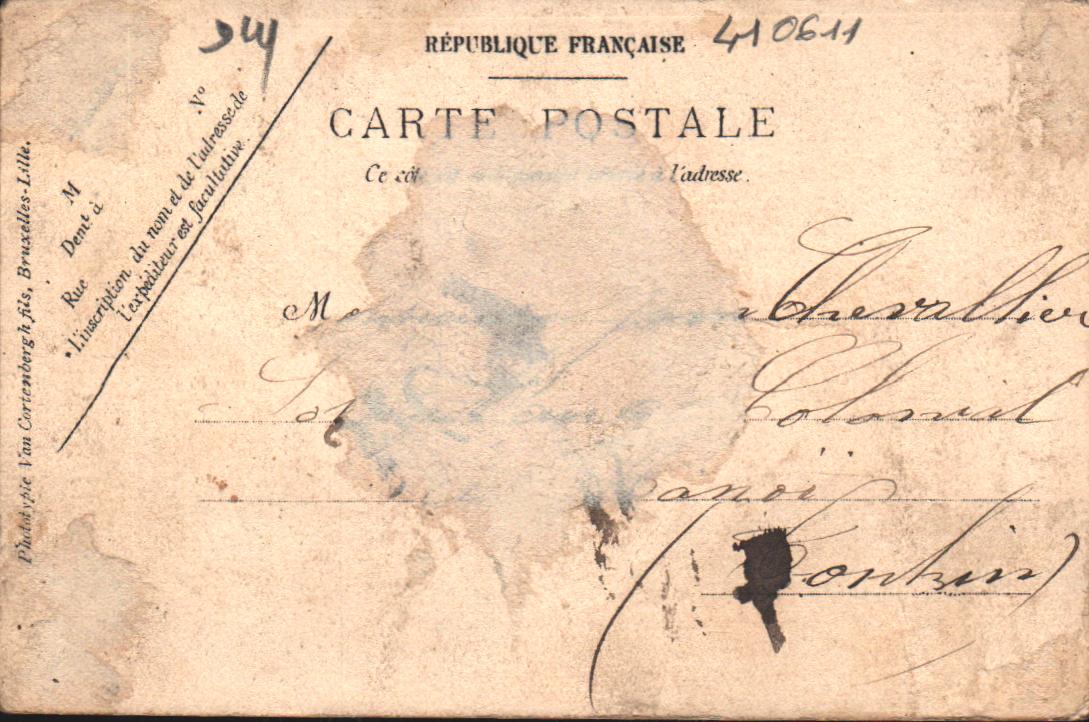 RÉPUBLIQUE FRANÇAISE 410611
CARTE POSTALE
Ce côt l'adresse.
N°
M
Demt à
Rue
"L'inscription du nom et de l'adresse de
l'expéditeur est facultative.
Phototypie Van Cortenbergh fils, Bruxelles-Lille.
M Chevallier
Colonial
anoï
(Tonkin)